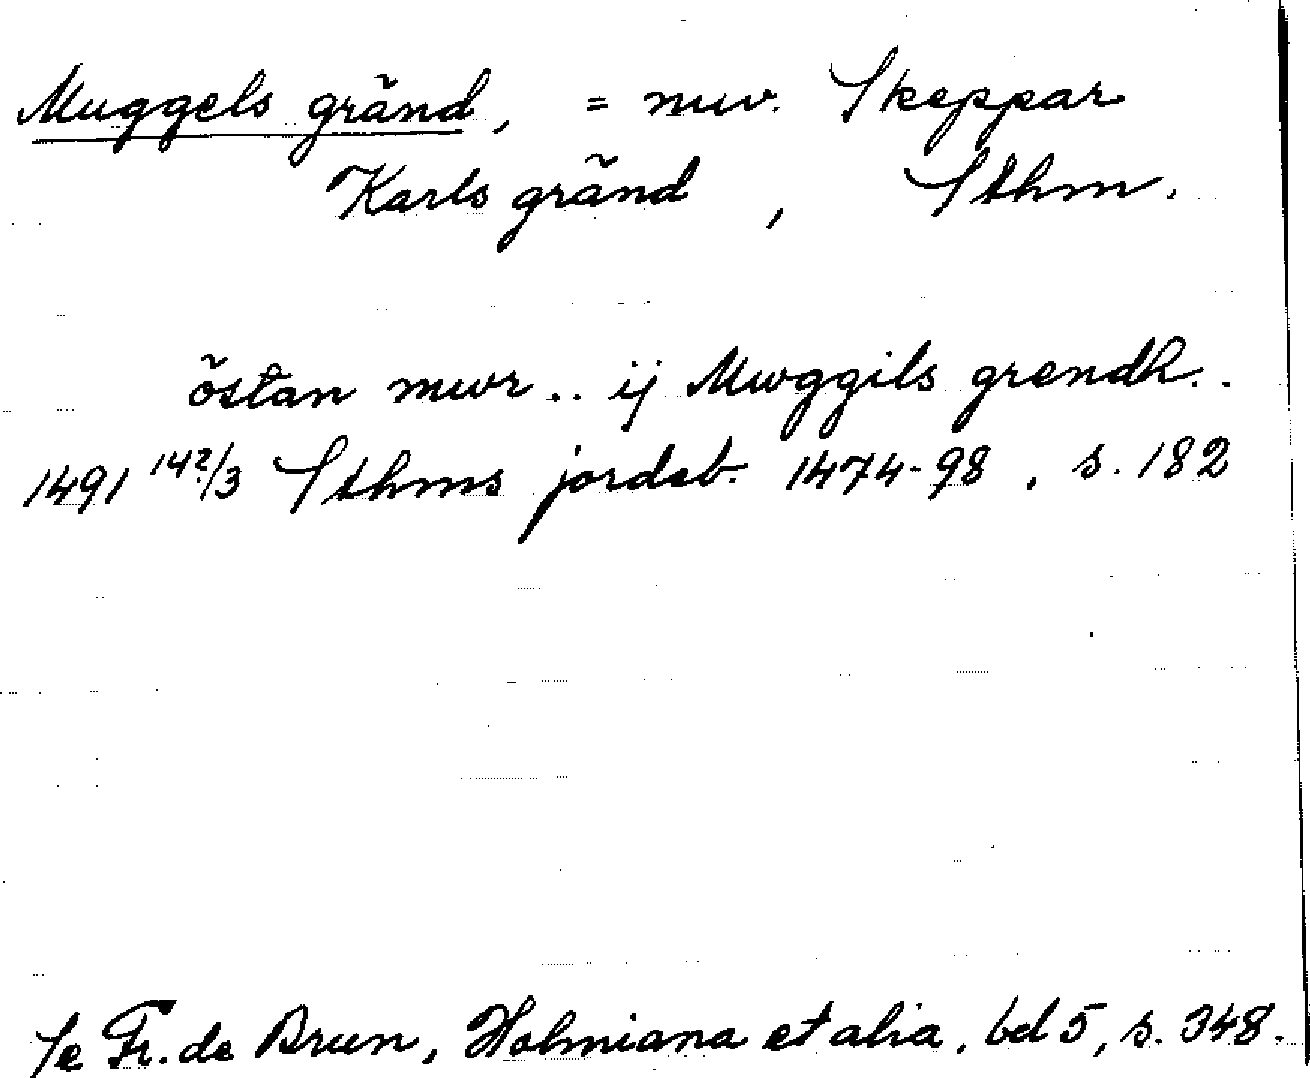 Muggels gränd, = nuv. Skeppar
Karls gränd, Sthm.
östan mwr .. ij Mwggils grendh..
1491 14?/3 Sthms jordeb. 1474-98, s. 182
Se Fr. de Brun, Holmiana et alia, bd 5, s. 348.